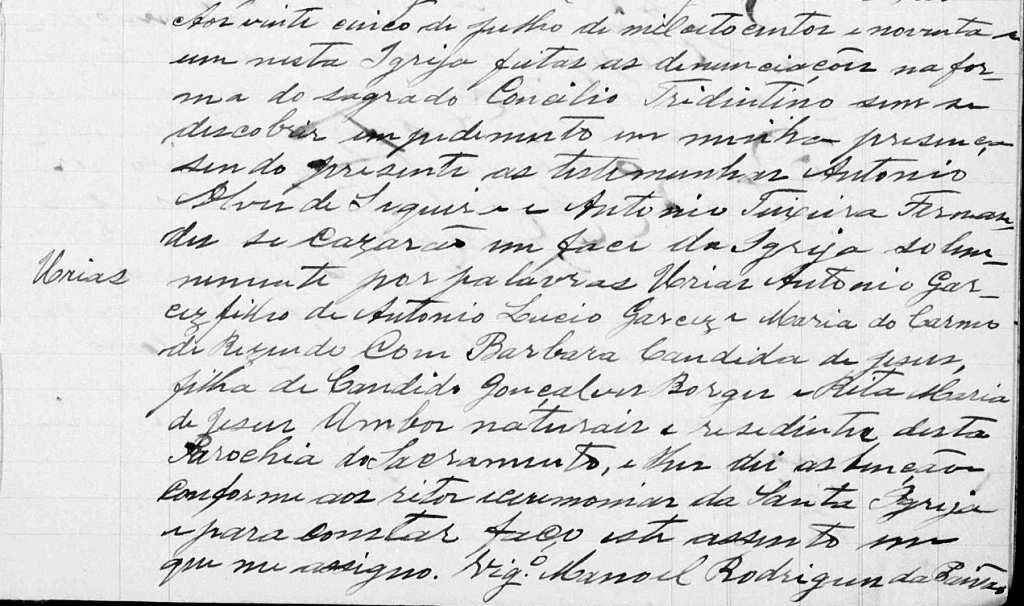 Aos vinte cinco de Julho de mil oito centos e noventa e
um nesta Igreja feitas as denunciaçōes na for-
ma do sagrado Concilio Tridintino sem se
descobrir impedimento em minha presença
sendo presente as testemunhas Antonio
Alves de Siqueira e Antonio Teixeira Fernan-
des se cazarão em face da Igreja solem-
Urias
nemente por palavras Urias Antonio Gar-
cez filho de Antonio Lucio Garcez e Maria do Carmo
de Rezende Com Barbara Candida de Jesus,
filha de Candido Gonçalves Borges e Rita Maria
de Jesus Ambos naturais e residentes desta
Parochia do Sacramento, e lhes dei as bençãos
conforme aos ritos e ceremonias da Santa Igreja
e para constar faço este assento em
que me assigno. Vigº Manoel Rodrigues da